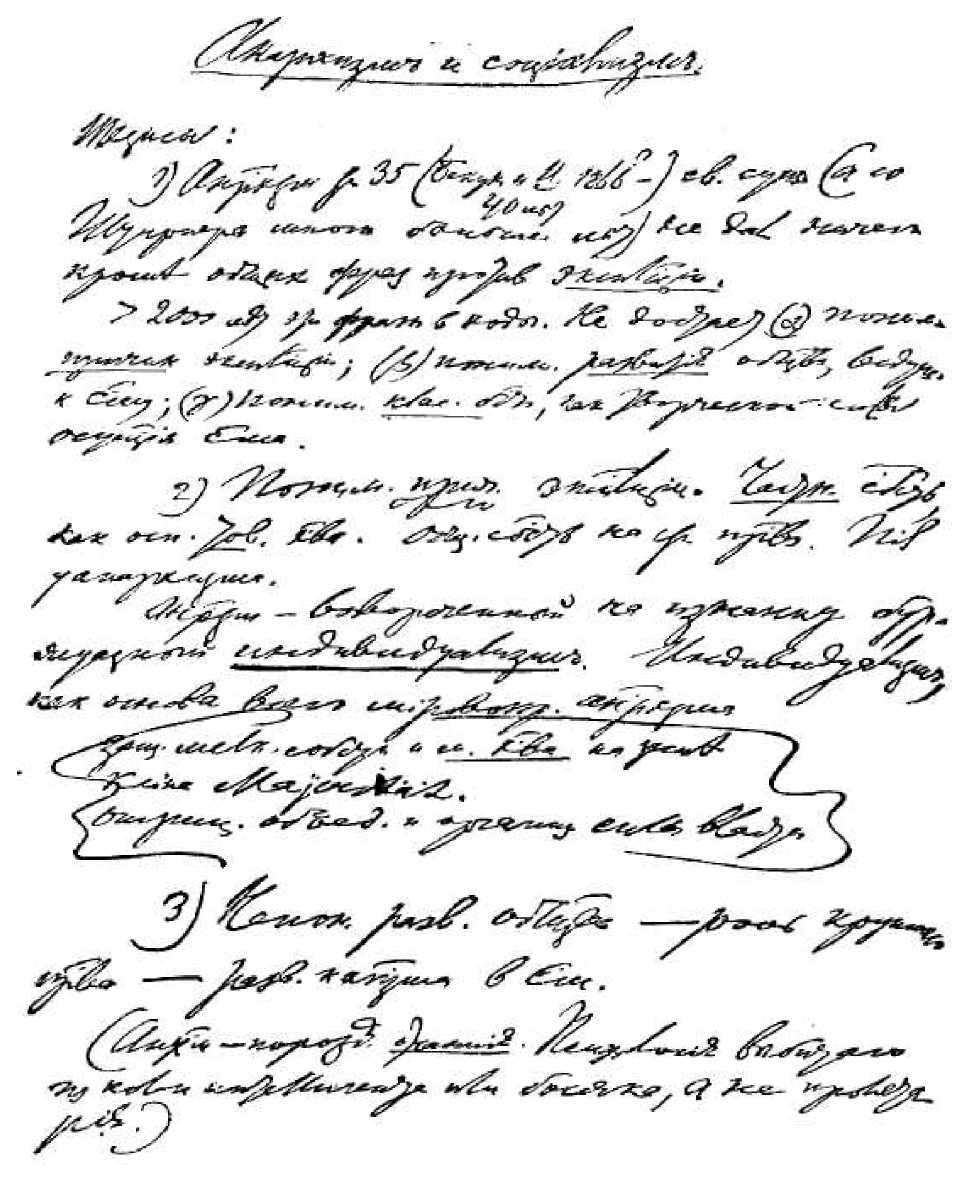 Анархизмъ и соціализмъ.
Тезисы:
1) Анархизм за 35 (Бакун. и И. 1866–) 40 лет
Штирнера много лет) не дал ничего
кроме общих фраз против эксплуатации.
> 2000 лет эти фразы в ходу. Не достает (α) поним.
причин эксплуатации; (β) поним. развитія общества, ведущ.
к ; (γ) поним. клас. борьбы, как творческой силы
осуществления
2) Поним. причин эксплуатации. Частн. собств.
как осн. тов. хва. Общ. собств. на ср. произв. Nil
у анархизма.
Анархизм — вывороченный на изнанку бур-
жуазный индивидуализмъ. Индивидуализмъ,
как основа всего міровоззр. анархизма
защ. мелк. собств. и м. хва на земле
Keine Majorität.
Отриц. объед. и организ. силы власти
3) Непон. разв. общества — роль крупного
пр-ва — разв. капитализма в
(Анархизм — порожд. отчаянія. Психология выбитого
из колеи интеллигента или босяка, а не пролета-
рія.)